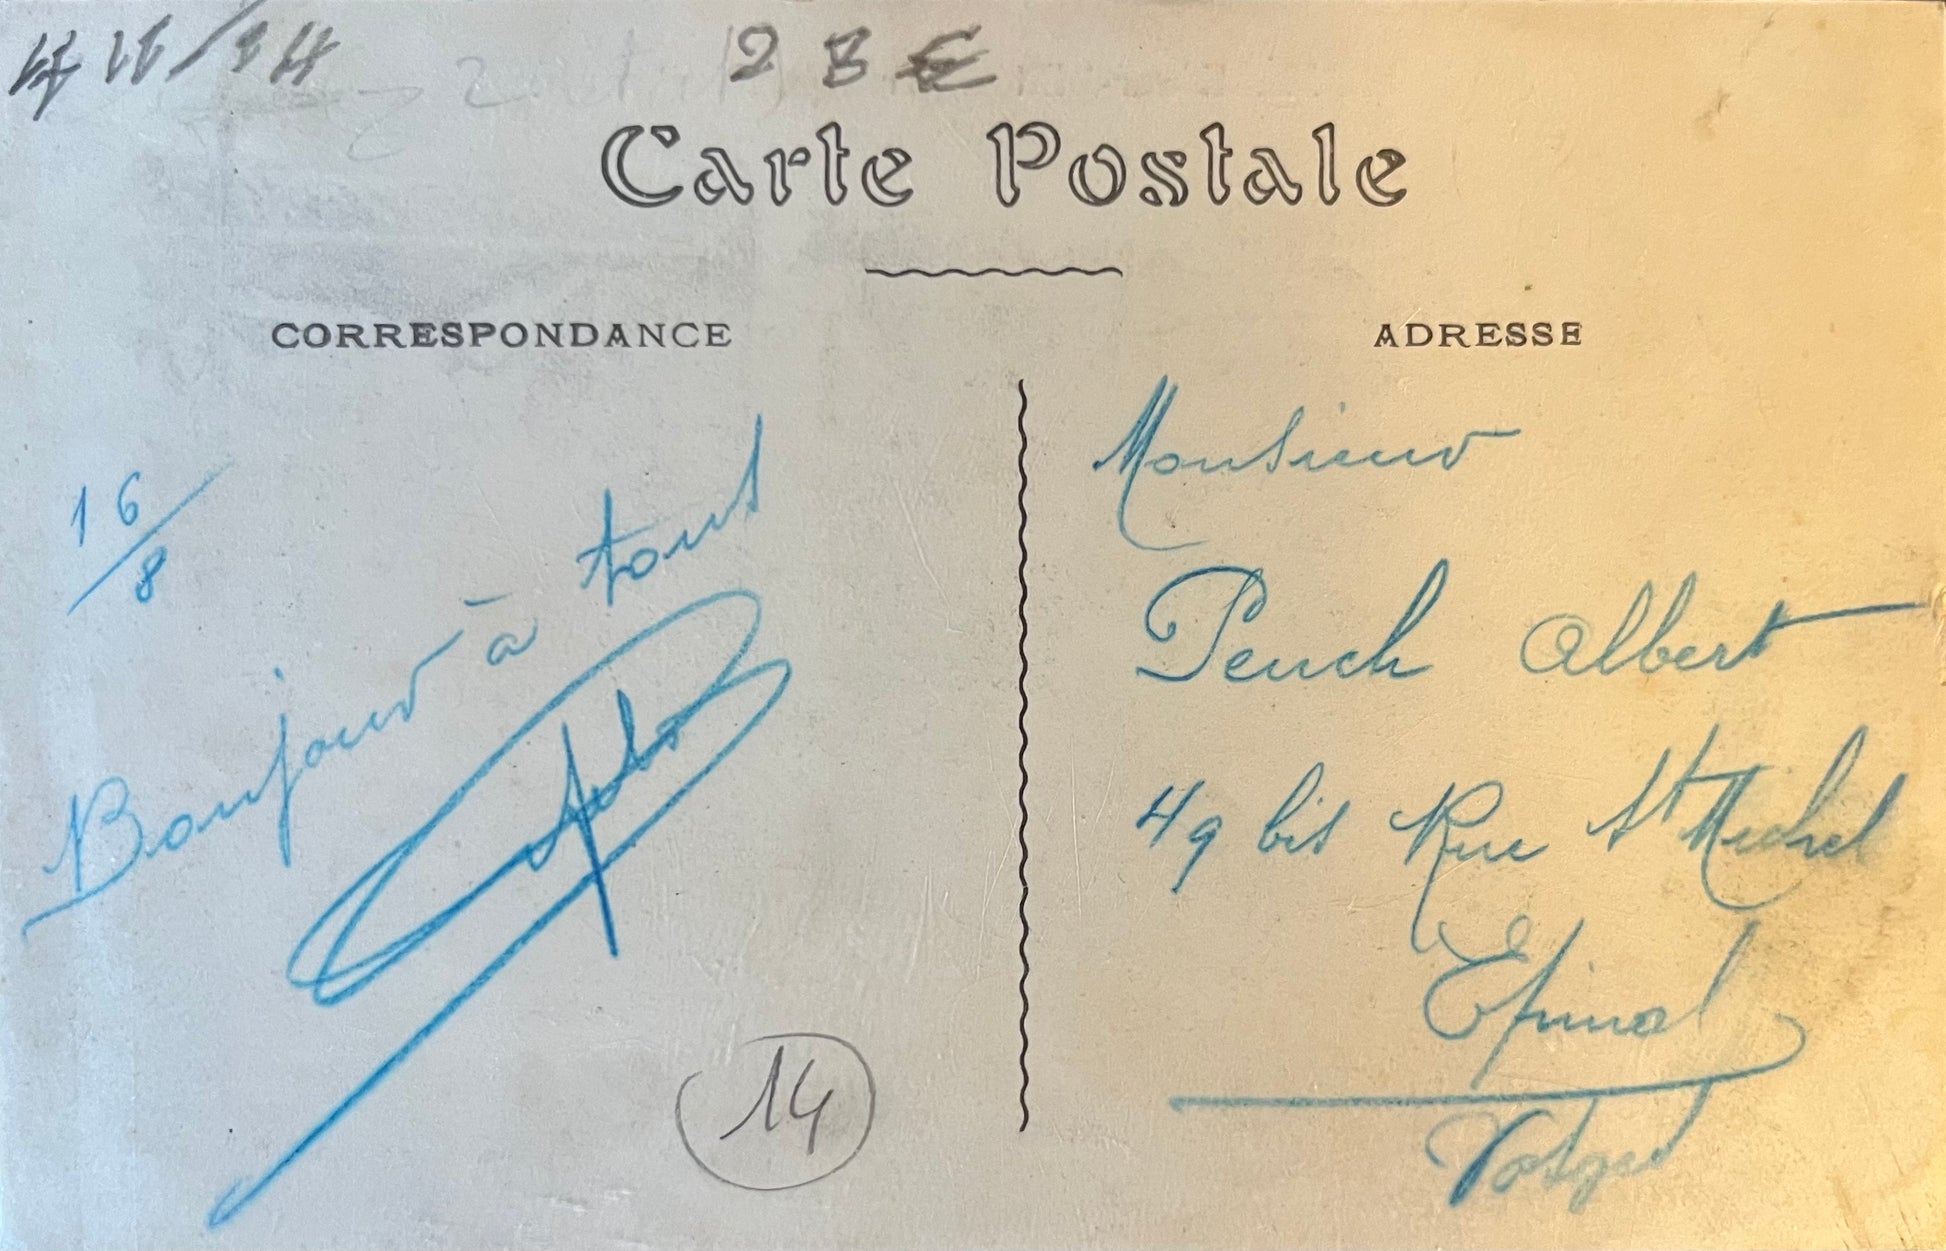 2 B €
Carte Postale
CORRESPONDANCE
16/8
Bonjour à tous
14
ADRESSE
Monsieur
Peuch Albert
49 bis Rue St Michel
Epinal
Vosges